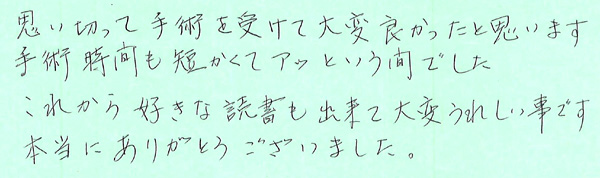 思い切って手術を受けて大変良かったと思います
手術時間も短かくてアッという間でした
これから好きな読書も出来て大変うれしい事です
本当にありがとうございました。